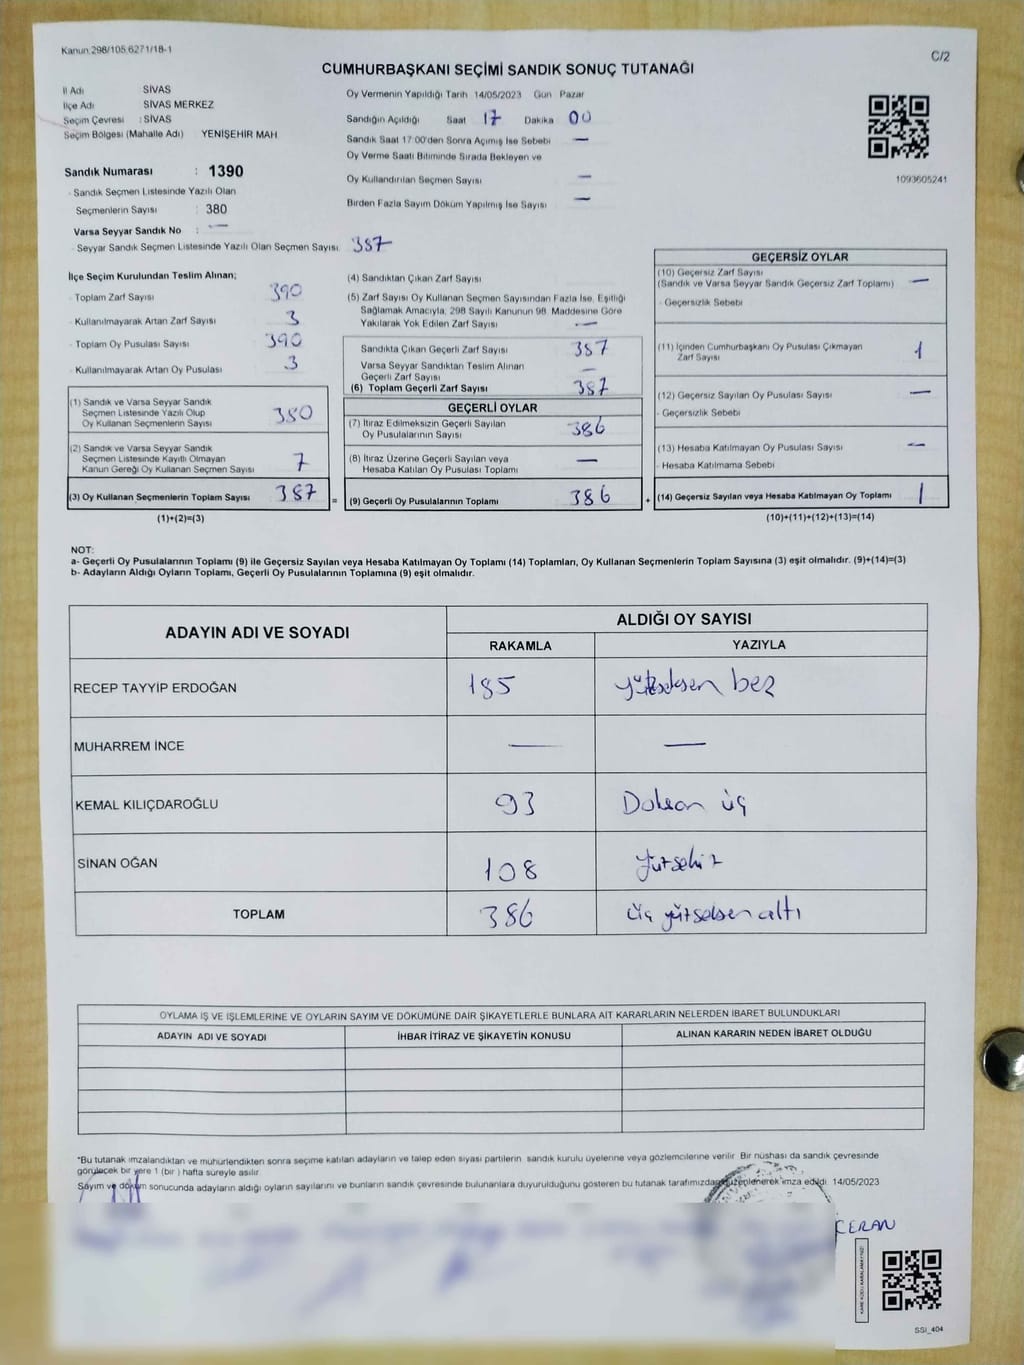 Kanun.298/105.6271/18-1
C/2
CUMHURBAŞKANI SEÇİMİ SANDIK SONUÇ TUTANAĞI
İl Adı SİVAS
İlçe Adı SİVAS MERKEZ
Seçim Çevresi : SİVAS
Seçim Bölgesi (Mahalle Adı) YENİŞEHİR MAH
Oy Vermenin Yapıldığı Tarih 14/05/2023 Gün Pazar
Sandığın Açıldığı Saat 17 Dakika 00
Sandık Saat 17:00'den Sonra Açılmış İse Sebebi —
Oy Verme Saati Bitiminde Sırada Bekleyen ve
Oy Kullandırılan Seçmen Sayısı —
Birden Fazla Sayım Döküm Yapılmış İse Sayısı —
1093605241
Sandık Numarası : 1390
- Sandık Seçmen Listesinde Yazılı Olan
Seçmenlerin Sayısı : 380
Varsa Seyyar Sandık No : —
- Seyyar Sandık Seçmen Listesinde Yazılı Olan Seçmen Sayısı.
İlçe Seçim Kurulundan Teslim Alınan;
- Toplam Zarf Sayısı 390
- Kullanılmayarak Artan Zarf Sayısı 3
- Toplam Oy Pusulası Sayısı 390
- Kullanılmayarak Artan Oy Pusulası 3
(1) Sandık ve Varsa Seyyar Sandık
Seçmen Listesinde Yazılı Olup
Oy Kullanan Seçmenlerin Sayısı 380
(2) Sandık ve Varsa Seyyar Sandık
Seçmen Listesinde Kayıtlı Olmayan
Kanun Gereği Oy Kullanan Seçmen Sayısı 7
(3) Oy Kullanan Seçmenlerin Toplam Sayısı 387 =
(1)+(2)=(3)
387
(4) Sandıktan Çıkan Zarf Sayısı
(5) Zarf Sayısı Oy Kullanan Seçmen Sayısından Fazla İse, Eşitliği
Sağlamak Amacıyla, 298 Sayılı Kanunun 98. Maddesine Göre
Yakılarak Yok Edilen Zarf Sayısı —
Sandıkta Çıkan Geçerli Zarf Sayısı 387
Varsa Seyyar Sandıktan Teslim Alınan
Geçerli Zarf Sayısı —
(6) Toplam Geçerli Zarf Sayısı 387
GEÇERLİ OYLAR
(7) İtiraz Edilmeksizin Geçerli Sayılan
Oy Pusulalarının Sayısı 386
(8) İtiraz Üzerine Geçerli Sayılan veya
Hesaba Katılan Oy Pusulası Toplamı —
(9) Geçerli Oy Pusulalarının Toplamı 386 +
GEÇERSİZ OYLAR
(10) Geçersiz Zarf Sayısı
(Sandık ve Varsa Seyyar Sandık Geçersiz Zarf Toplamı) —
- Geçersizlik Sebebi
(11) İçinden Cumhurbaşkanı Oy Pusulası Çıkmayan
Zarf Sayısı 1
(12) Geçersiz Sayılan Oy Pusulası Sayısı —
- Geçersizlik Sebebi
(13) Hesaba Katılmayan Oy Pusulası Sayısı —
- Hesaba Katılmama Sebebi
(14) Geçersiz Sayılan veya Hesaba Katılmayan Oy Toplamı 1
(10)+(11)+(12)+(13)=(14)
NOT:
a- Geçerli Oy Pusulalarının Toplamı (9) ile Geçersiz Sayılan veya Hesaba Katılmayan Oy Toplamı (14) Toplamları, Oy Kullanan Seçmenlerin Toplam Sayısına (3) eşit olmalıdır. (9)+(14)=(3)
b- Adayların Aldığı Oyların Toplamı, Geçerli Oy Pusulalarının Toplamına (9) eşit olmalıdır.
ADAYIN ADI VE SOYADI ALDIĞI OY SAYISI
RAKAMLA YAZIYLA
RECEP TAYYİP ERDOĞAN 185 yükseksen beş
MUHARREM İNCE — —
KEMAL KILIÇDAROĞLU 93 Doksan üç
SİNAN OĞAN 108 yüzsekiz
TOPLAM 386 Üç yüzseksen altı
OYLAMA İŞ VE İŞLEMLERİNE VE OYLARIN SAYIM VE DÖKÜMÜNE DAİR ŞİKAYETLERLE BUNLARA AİT KARARLARIN NELERDEN İBARET BULUNDUKLARI
ADAYIN ADI VE SOYADI İHBAR İTİRAZ VE ŞİKAYETİN KONUSU ALINAN KARARIN NEDEN İBARET OLDUĞU
*Bu tutanak imzalandıktan ve mühürlendikten sonra seçime katılan adayların ve talep eden siyasi partilerin, sandık kurulu üyelerine veya gözlemcilerine verilir. Bir nüshası da sandık çevresinde
görülecek bir yere 1 (bir) hafta süreyle asılır.
Sayım ve döküm sonucunda adayların aldığı oyların sayılarını ve bunların sandık çevresinde bulunanlara duyurulduğunu gösteren bu tutanak tarafımızdan düzenlenerek imza edildi. 14/05/2023
CERAN
SSI_404